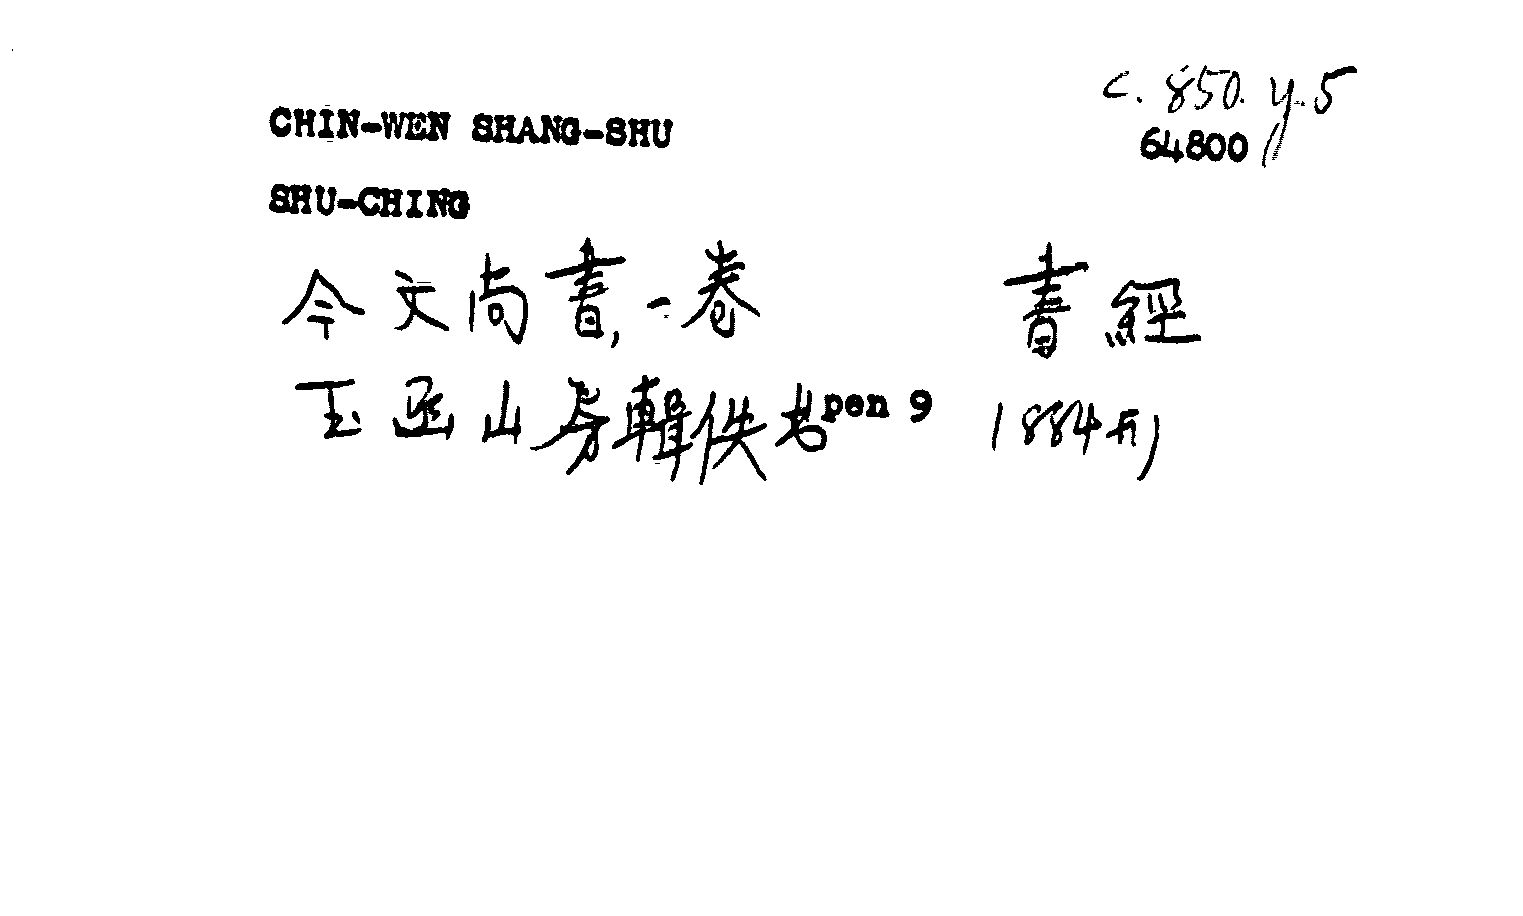 c. 850. y. 5
CHIN-WEN SHANG-SHU
64800
SHU-CHING
今文尚書,一卷 書經
玉函山房輯佚书 pen 9 1884刊